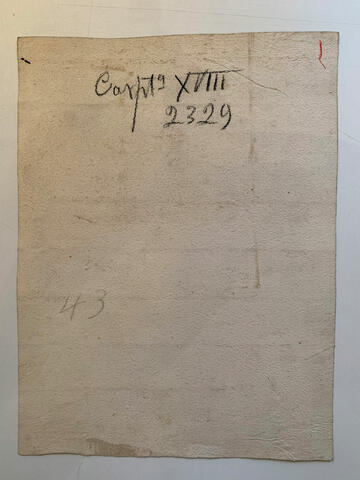 Carpta XVIII
2329
43